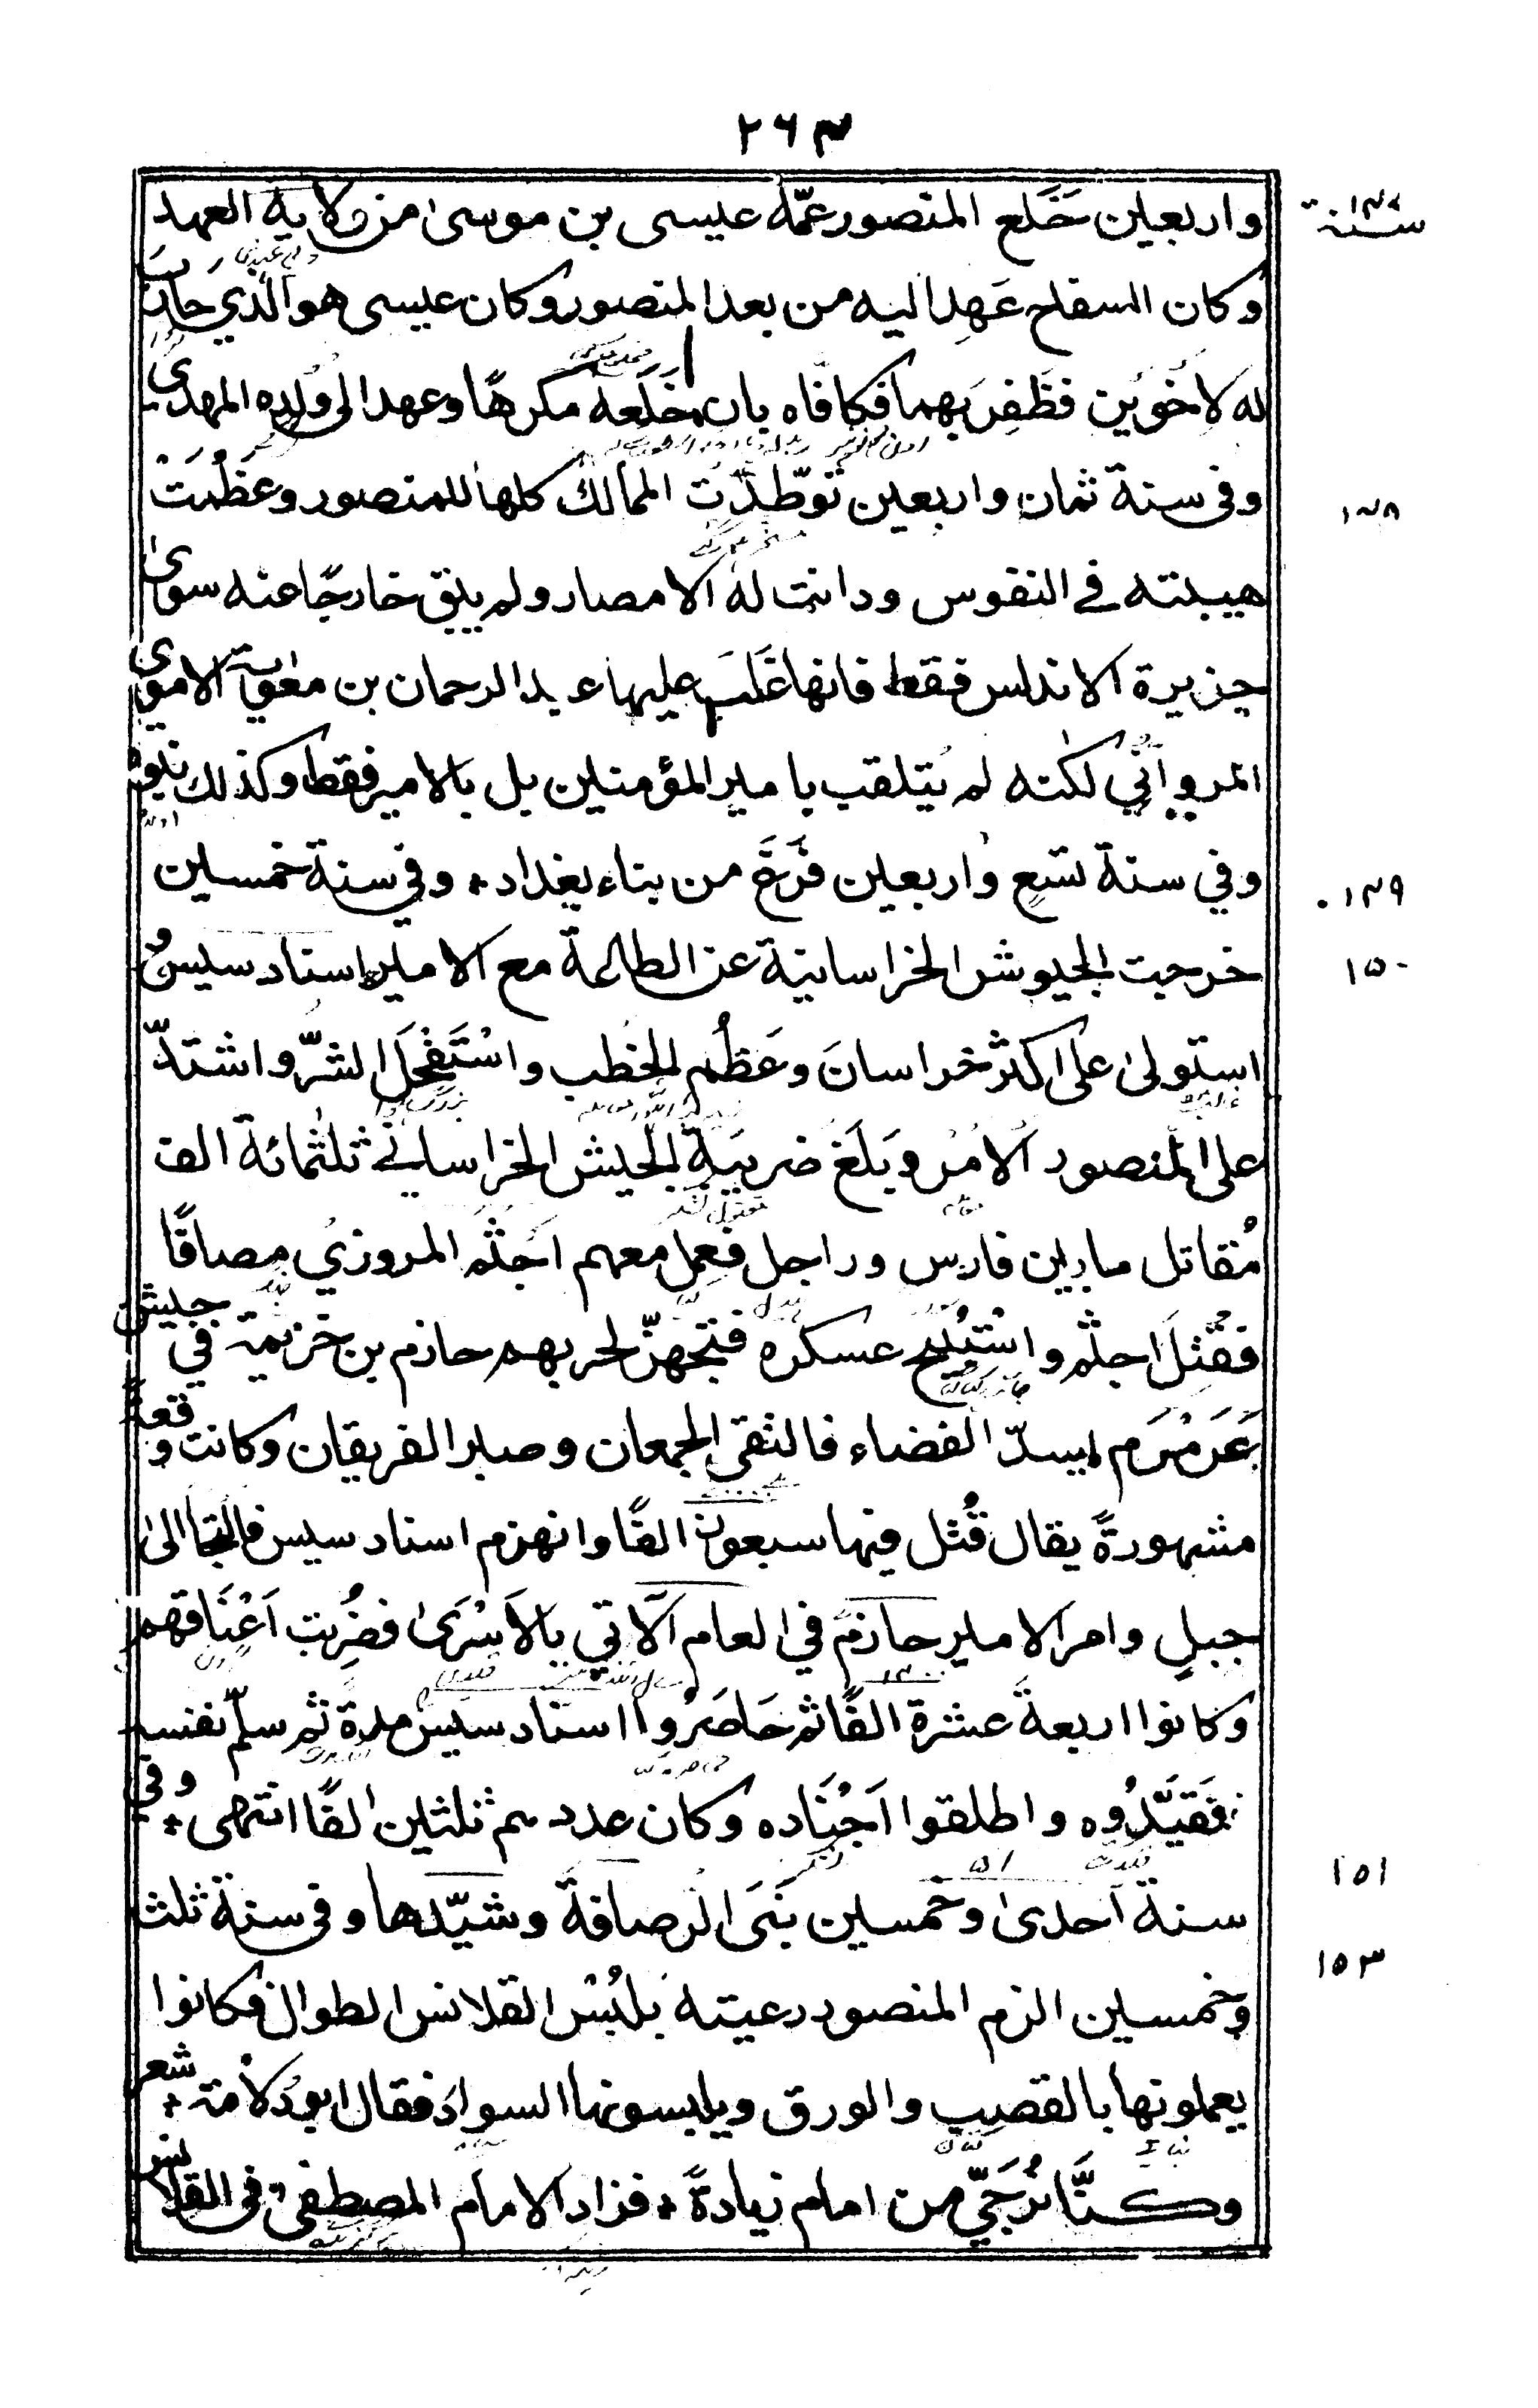 ۲۶۴
واربعين خَلَع المنصور عمّه عيسى بن موسىٰ من ولاية العهد
سنة ۱۴۷
وكان السفاح عَهِد اليه من بعد المنصور وكان عيسى هو الّذي حارَبَ
له لاخوين فظَفِرَ بهما فكافأه بان خَلَعه مكرهًا وعهد الى ولده المهدي
وفى سنة ثمان واربعين توطّدَت الممالك كلها للمنصور وعَظُمَتْ
۱۴۸
هيبته في النفوس ودانت له الامصار ولم يبق خارجًا عنه سوىٰ
جزيرة الاندلس فقط فانها غَلَبَ عليها عبد الرحمان بن معٰوية الاموى
المروانّي لكنه لم يتلقب بامير المؤمنين بل بالامير فقط وكذلك بنوه
وفي سنة تسع واربعين فَرَغَ من بناء بغداد* وفي سنة خمسين
۱۴۹
خرجت الجيوش الخراسانية عن الطاعة مع الامير استاد سيس و
۱۵۰
استولىٰ على اكثر خراسانَ وعَظُم الخطب واسْتَفْحَلَ الشرّ واشتدّ
على المنصور الامرُ وبَلَغَ ضريبة الجيش الخراساني ثلٰثمائة الف
مُقاتل مابين فارس وراجل فعمل معهم اجثم المروزي مصافًا
فقُتِلَ اجثم واسْتُبِيح عسكره فتجهزّ لحربهم حازم بن خزيمة في جيش
عَرَمْرَم يسدّ الفضاء فالتقى الجمعان وصبر الفريقان وكانت وقعةً
مشهورةً يقال قُتل فيها سبعون الفًا وانهزم استاد سيس فالتجا الىٰ
جبلٍ وامر الامير حازم في العام الآتي بالاَسْرَىٰ فضُرِبت اَعْنَاقهم
وكانوا اربعةَ عشرة الفًا ثم حَاصَرُوا استاد سيس مدة ثم سلّم نفسه
فقَيَّدُوه واطلقوا اَجْنَاده وكان عددهم ثلثين الفًا انتهى* وفي
سنة احدىٰ وخمسين بَنَى الرصافة وشيّدها وفى سنة ثلث
۱۵۱
وخمسين الزم المنصور رعيته بلُبْس القلانس الطوال فكانوا
۱۵۳
يعملونها بالقصب والورق ويلبسونها السواد فقال ابو دُلامة* شعر
وكنَّا نُرَجِّي من امام زيادةً* فزاد الامام المصطفى فى القلانس